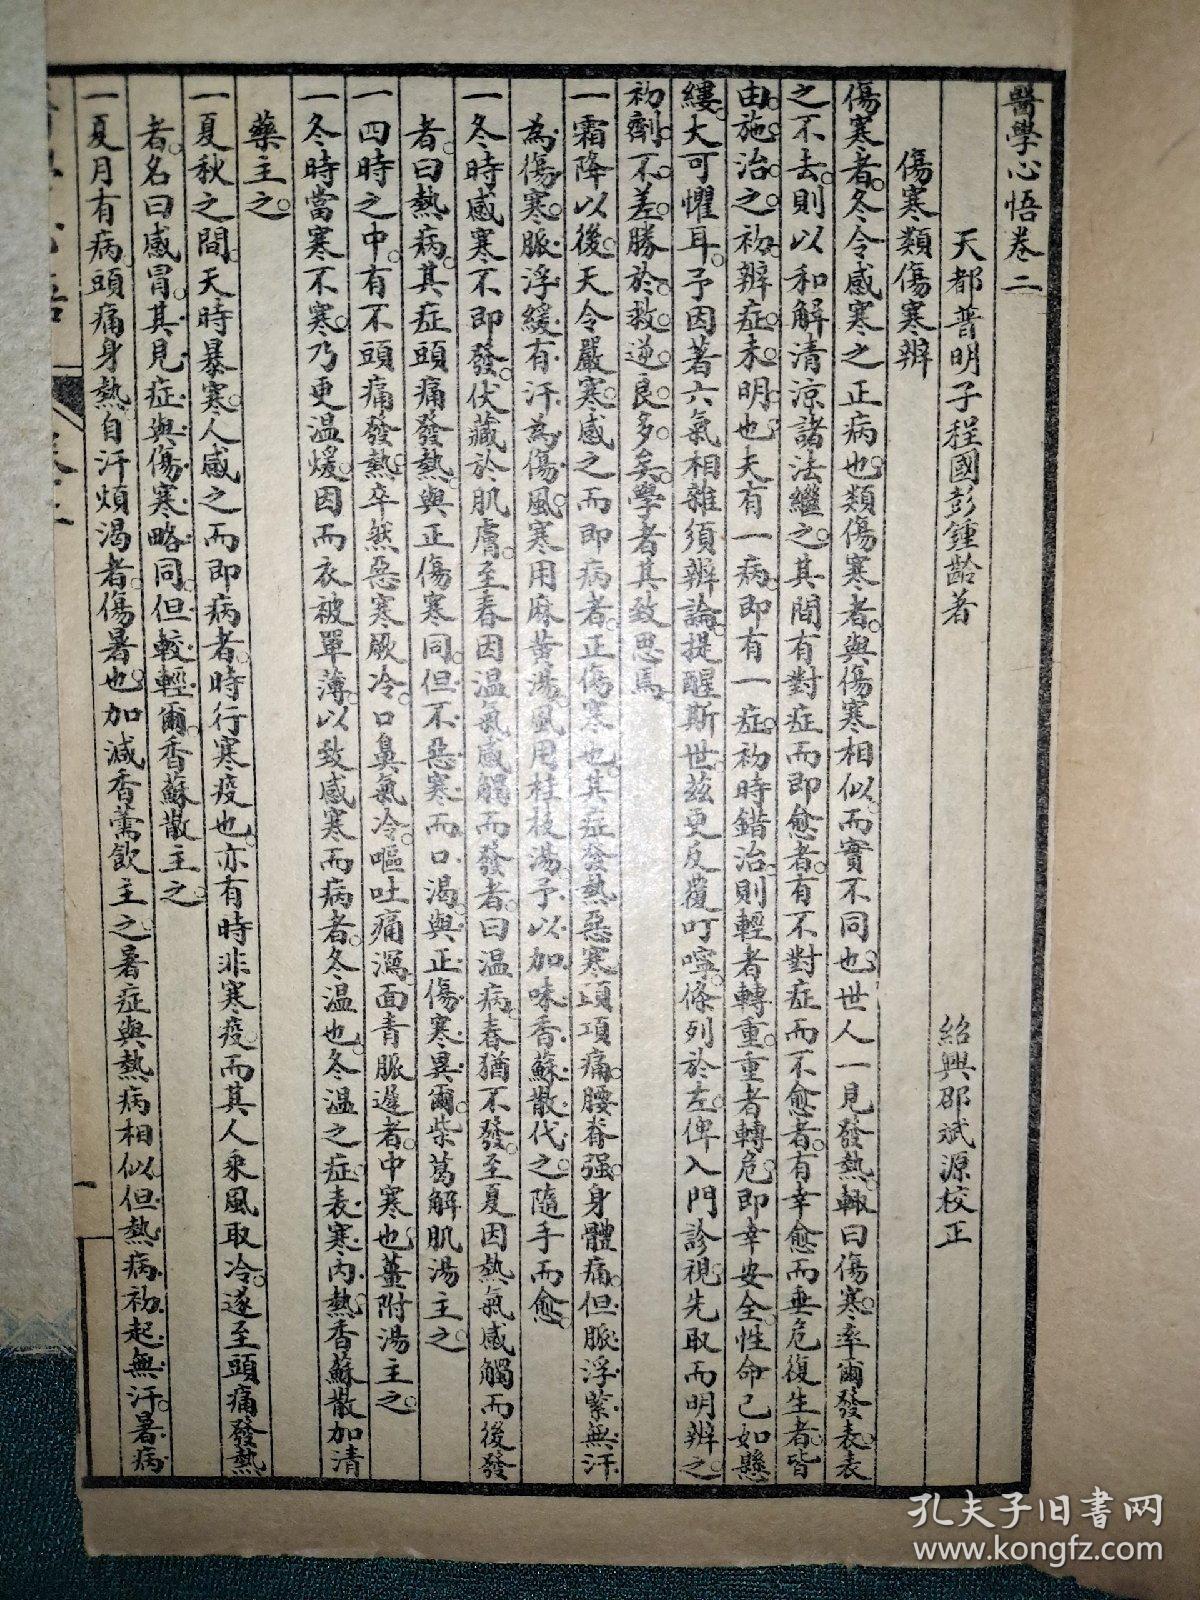 醫學心悟卷二
天都普明子程國彭鍾齡著 紹興邵斌源校正
傷寒類傷寒辨
傷寒者。冬令感寒之正病也。類傷寒者。與傷寒相似而實不同也。世人一見發熱。輙曰傷寒。率爾發表。表
之不去。則以和解清涼諸法繼之。其間有對症而即愈者。有不對症而不愈者。有幸愈而垂危復生者。皆
由施治之初。辨症未明也。夫有一病。即有一症。初時錯治。則輕者轉重。重者轉危。即幸安全。性命已如懸
縷。大可懼耳。予因著六氣相雜須辨論。提醒斯世。茲更反覆叮嚀。條列於左。俾入門診視。先取而明辨之。
初劑不差。勝於救逆良多矣。學者其致思焉。
一霜降以後。天令嚴寒。感之而即病者。正傷寒也。其症發熱惡寒。頭項痛。腰脊强。身體痛。但脈浮緊無汗
為傷寒。脈浮緩有汗為傷風。寒用麻黄湯。風用桂枝湯。予以加味香蘇散代之。隨手而愈。
一冬時感寒不即發。伏藏於肌膚。至春因温氣感觸而發者。曰温病。春猶不發。至夏因熱氣感觸而後發
者。曰熱病。其症頭痛發熱。與正傷寒同。但不惡寒而口渴。與正傷寒異爾。柴葛解肌湯主之。
一四時之中。有不頭痛發熱。卒然惡寒厥冷。口鼻氣冷。嘔吐痛瀉。面青脈遲者。中寒也。薑附湯主之。
一冬時當寒不寒。乃更温煖。因而衣被單薄。以致感寒而病者。冬温也。冬温之症。表寒内熱。香蘇散加清
藥主之。
一夏秋之間。天時暴寒。人感之而即病者。時行寒疫也。亦有時非寒疫。而其人乘風取冷。遂至頭痛發熱
者。名曰感冒。其見症與傷寒略同。但較輕爾。香蘇散主之。
一夏月有病。頭痛身熱。自汗煩渴者。傷暑也。加減香薷飲主之。暑症與熱病相似。但熱病初起無汗。暑病
孔夫子旧書网
www.kongfz.com